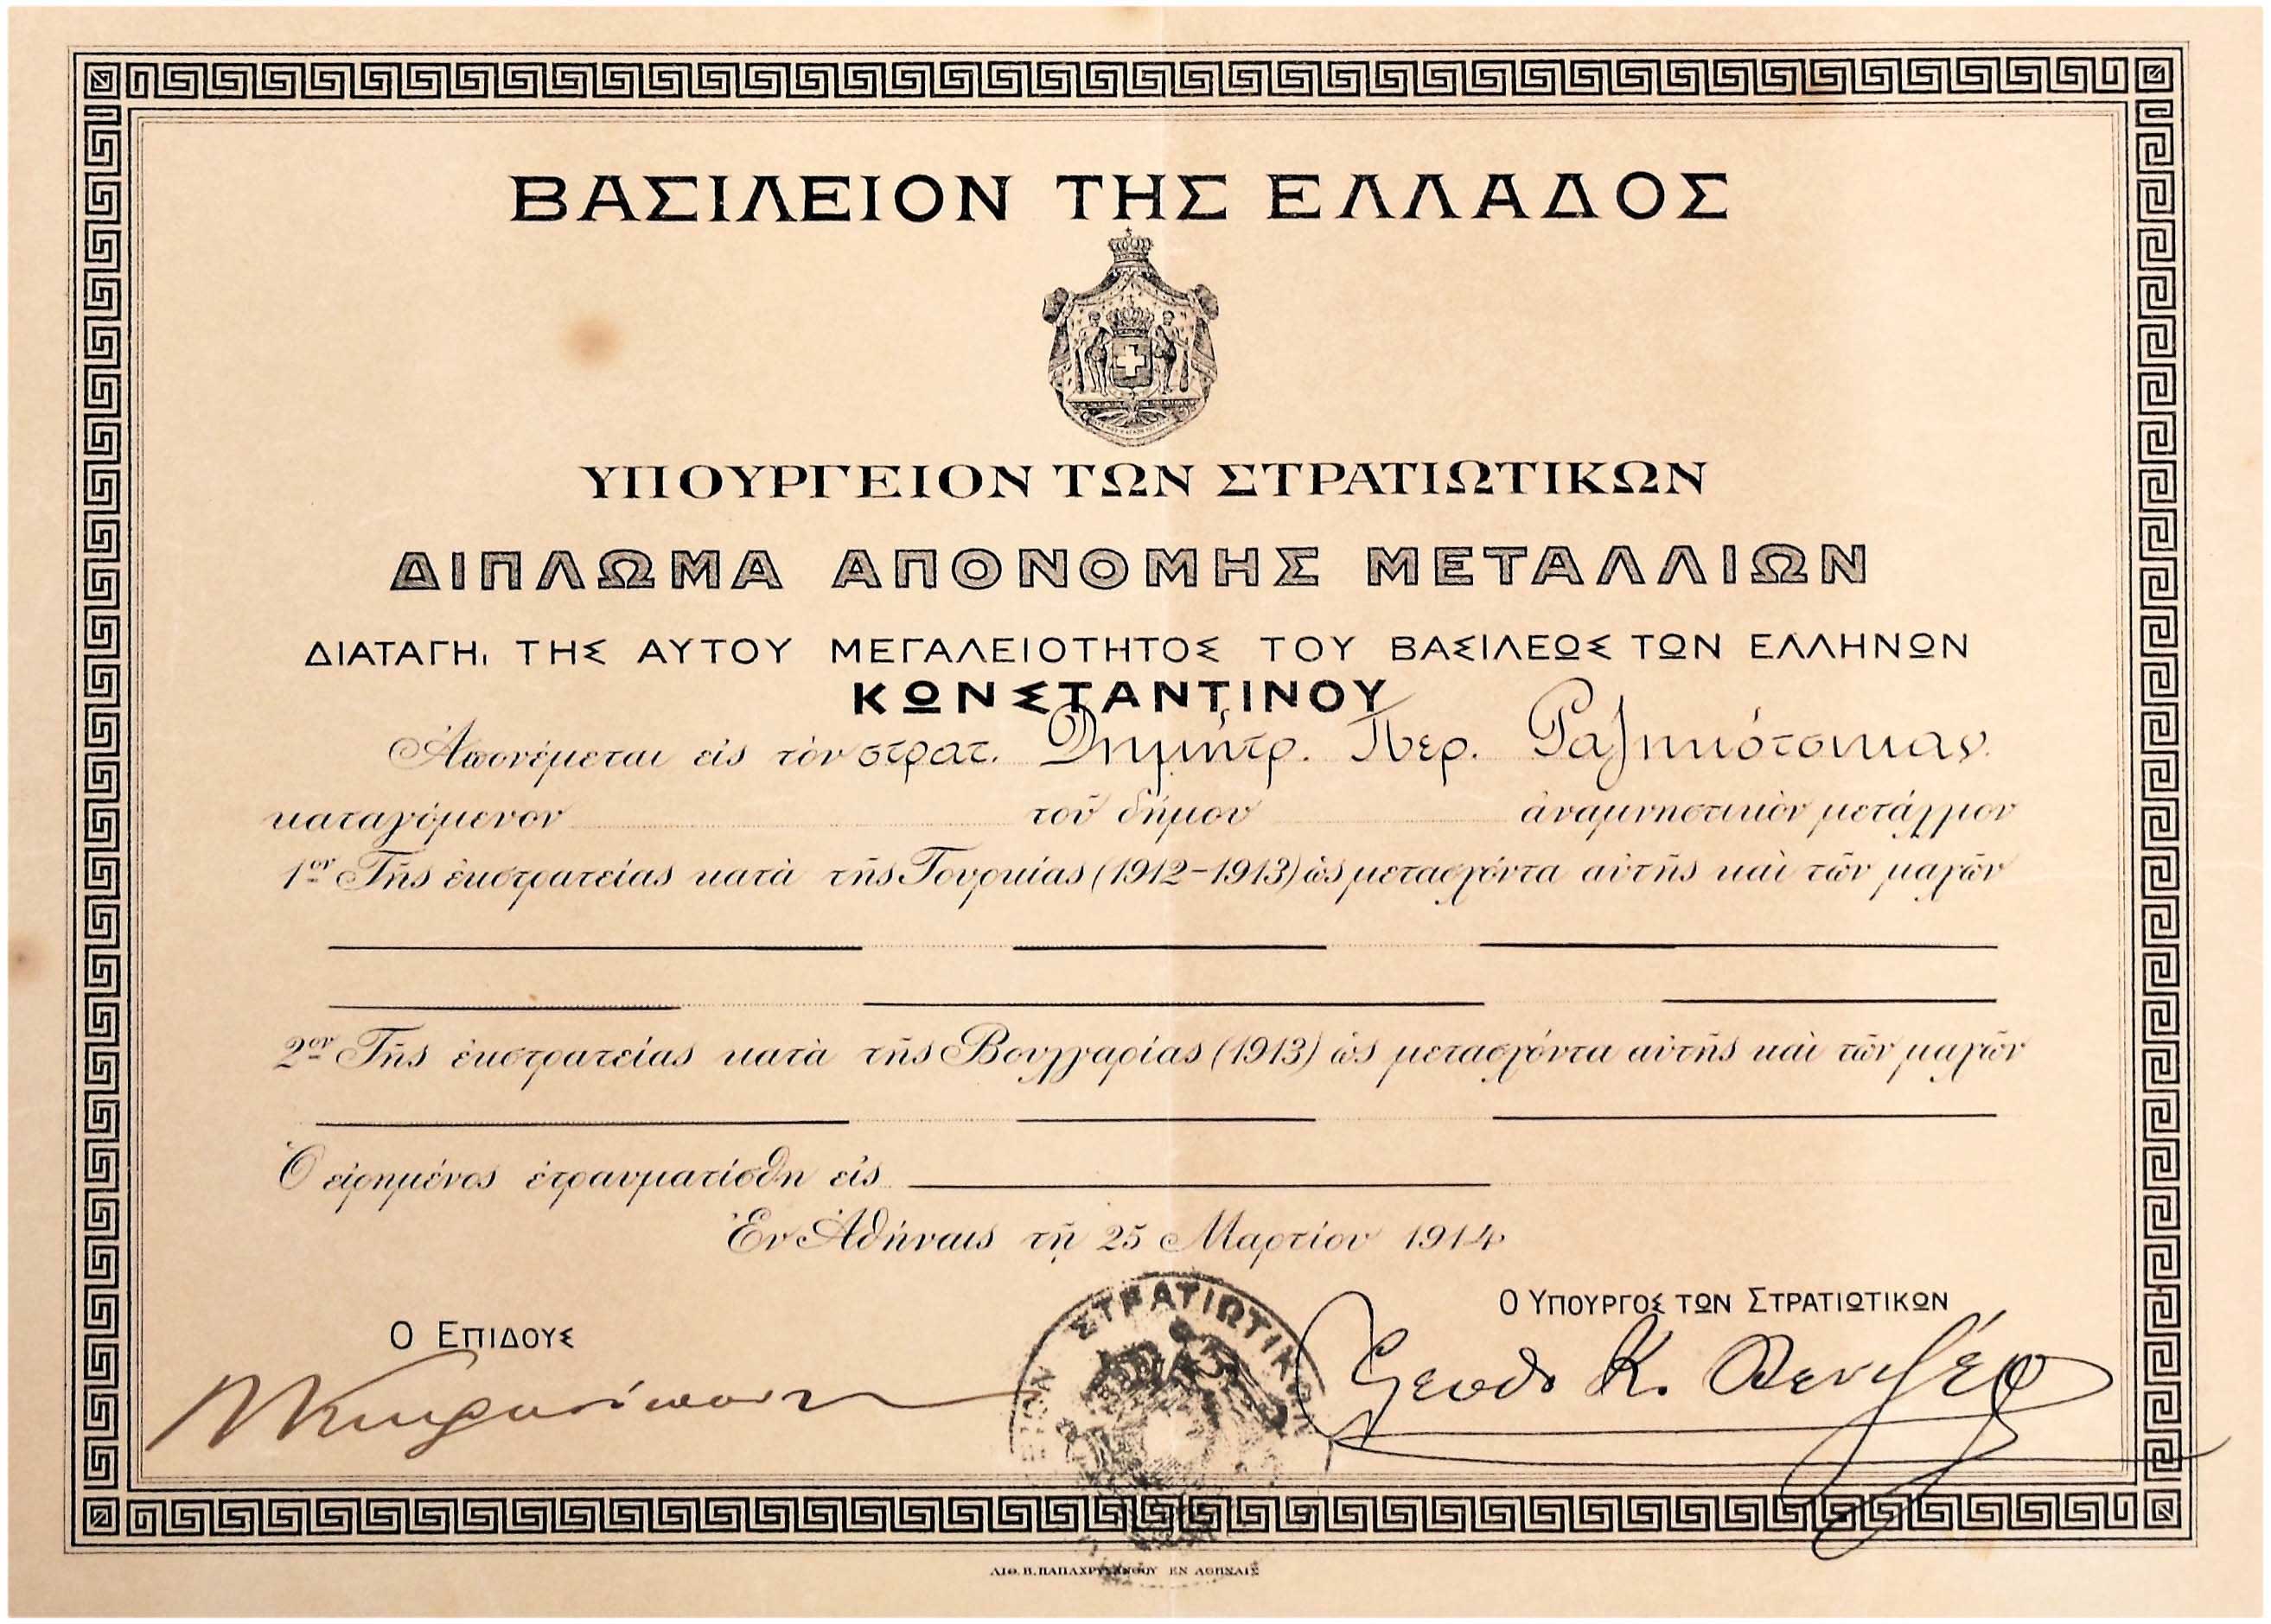 ΒΑΣΙΛΕΙΟΝ ΤΗΣ ΕΛΛΑΔΟΣ
ΥΠΟΥΡΓΕΙΟΝ ΤΩΝ ΣΤΡΑΤΙΩΤΙΚΩΝ
ΔΙΠΛΩΜΑ ΑΠΟΝΟΜΗΣ ΜΕΤΑΛΛΙΩΝ
ΔΙΑΤΑΓΗι ΤΗΣ ΑΥΤΟΥ ΜΕΓΑΛΕΙΟΤΗΤΟΣ ΤΟΥ ΒΑΣΙΛΕΩΣ ΤΩΝ ΕΛΛΗΝΩΝ
ΚΩΝΣΤΑΝΤΙΝΟΥ
Ἀπονέμεται εἰς τὸν στρατ. Δημήτρ. Περ.
καταγόμενον τοῦ δήμου ἀναμνηστικὸν μετάλλιον
1ον Τῆς ἐκστρατείας κατὰ τῆς Τουρκίας (1912-1913) ὡς μετασχόντα αὐτῆς καὶ τῶν μαχῶν
2ον Τῆς ἐκστρατείας κατὰ τῆς Βουλγαρίας (1913) ὡς μετασχόντα αὐτῆς καὶ τῶν μαχῶν
Ὁ εἰρημένος ἐτραυματίσθη εἰς
Ἐν Ἀθήναις τῇ 25 Μαρτίου 1914
Ο ΥΠΟΥΡΓΟΣ ΤΩΝ ΣΤΡΑΤΙΩΤΙΚΩΝ
Ο ΕΠΙΔΟΥΣ
ΣΤΡΑΤΙΩΤΙΚΩΝ
Ελευθ Κ. Βενιζέλο
ΛΙΘ. Π. ΠΑΠΑΧΡΥΣΑΝΘΟΥ ΕΝ ΑΘΗΝΑΙΣ